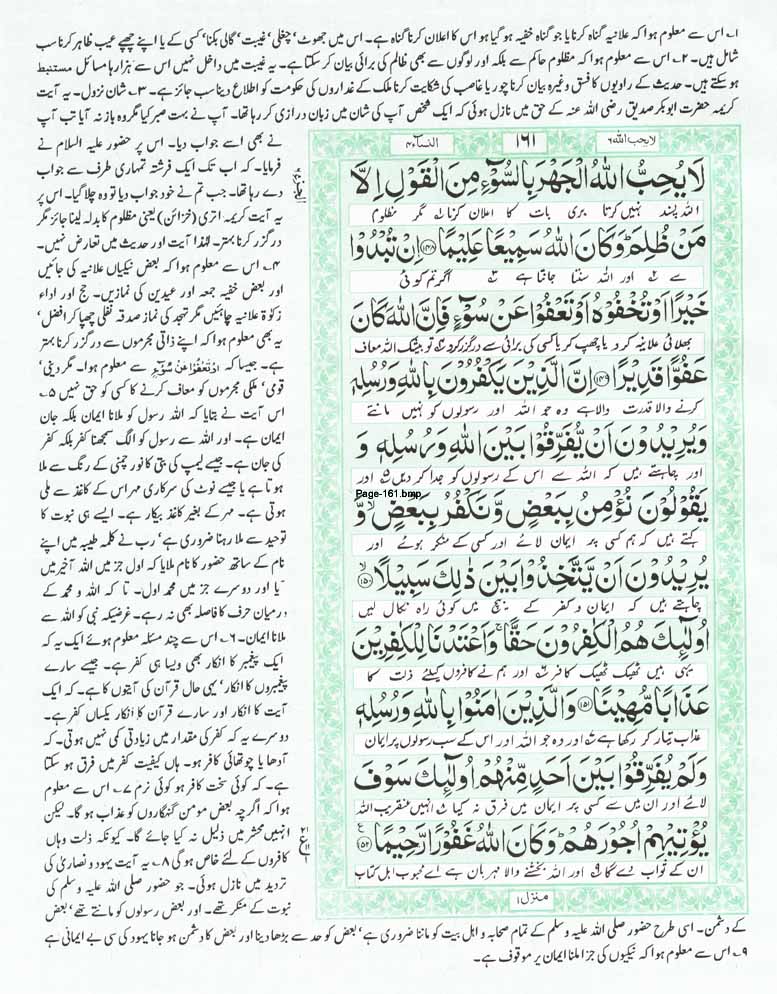 ۱۔ اس سے معلوم ہوا کہ علانیہ گناہ کرنا یا جو گناہ خفیہ ہو گیا ہو اس کا اعلان کرنا گناہ ہے۔ اس میں جھوٹ، چغلی، غیبت، گالی بکنا، کسی کے یا اپنے چھپے عیب ظاہر کرنا سب
شامل ہیں۔ ۲۔ اس سے معلوم ہوا کہ مظلوم حاکم سے بلکہ اور لوگوں سے بھی ظالم کی برائی بیان کر سکتا ہے۔ یہ غیبت میں داخل نہیں اس سے ہزارہا مسائل مستنبط
ہو سکتے ہیں۔ حدیث کے راویوں کا فسق وغیرہ بیان کرنا چور یا غاصب کی شکایت کرنا ملک کے غداروں کی حکومت کو اطلاع دینا سب جائز ہے۔ ۳۔ شان نزول۔ یہ آیت
کریمہ حضرت ابوبکر صدیق رضی اللہ عنہ کے حق میں نازل ہوئی کہ ایک شخص آپ کی شان میں زبان درازی کر رہا تھا۔ آپ نے بہت صبر کیا مگر وہ باز نہ آیا تب آپ
نے بھی اسے جواب دیا۔ اس پر حضور علیہ السلام نے
فرمایا۔ کہ اب تک ایک فرشتہ تمہاری طرف سے جواب
دے رہا تھا۔ جب تم نے خود جواب دیا تو وہ چلا گیا۔ اس پر
یہ آیت کریمہ اتری (خزائن) یعنی مظلوم کا بدلہ لینا جائز مگر
درگزر کرنا بہتر۔ لہٰذا آیت اور حدیث میں تعارض نہیں۔
۴۔ اس سے معلوم ہوا کہ بعض نیکیاں علانیہ کی جائیں
اور بعض خفیہ جمعہ اور عیدین کی نمازیں۔ حج اور اداء
زکوٰۃ علانیہ چاہئیں مگر تہجد کی نماز صدقہ نفلی چھپا کر افضل،
یہ بھی معلوم ہوا کہ اپنے ذاتی مجرموں سے درگزر کرنا بہتر
ہے۔ جیسا کہ اَوْتَعْفُوْا عَنْ سُوْٓءٍ سے معلوم ہوا۔ مگر دینی،
قومی، ملکی مجرموں کو معاف کرنے کا کسی کو حق نہیں ۵۔
اس آیت نے بتایا کہ اللہ رسول کو ملانا ایمان بلکہ جان
ایمان ہے۔ اور اللہ سے رسول کو الگ سمجھنا کفر بلکہ کفر
کی جان ہے۔ جیسے لیمپ کی بتی کا نور چمنی کے رنگ سے ملا
ہوتا ہے یا جیسے نوٹ کی سرکاری مہر اس کے کاغذ سے ملی
ہوتی ہے۔ مہر کے بغیر کاغذ بیکار ہے۔ ایسے ہی نبوت کا
توحید سے ملا رہنا ضروری ہے، رب نے کلمہ طیبہ میں اپنے
نام کے ساتھ حضور کا نام ملایا کہ اول جز میں اللہ آخیر میں
یا اور دوسرے جز میں محمد اول۔ تا کہ اللہ و محمد کے
درمیان حرف کا فاصلہ بھی نہ رہے۔ غرضیکہ نبی کو اللہ سے
ملانا ایمان۔ ۶۔ اس سے چند مسئلہ معلوم ہوئے ایک یہ کہ
ایک پیغمبر کا انکار بھی ویسا ہی کفر ہے۔ جیسے سارے
پیغمبروں کا انکار، یہی حال قرآن کی آیتوں کا ہے۔ کہ ایک
آیت کا انکار اور سارے قرآن کا انکار یکساں کفر ہے۔
دوسرے یہ کہ کفر کی مقدار میں زیادتی کمی نہیں ہوتی۔ کہ
آدھا یا چوتھائی کافر ہو۔ ہاں کیفیت کفر میں فرق ہو سکتا
ہے۔ کہ کوئی سخت کافر ہو کوئی نرم ۷۔ اس سے معلوم
ہوا کہ اگرچہ بعض مومن گنہگاروں کو عذاب ہو گا۔ لیکن
انہیں محشر میں ذلیل نہ کیا جائے گا۔ کیونکہ ذلت وہاں
کافروں کے لئے خاص ہو گی ۸۔ یہ آیت یہود و نصاریٰ کی
تردید میں نازل ہوئی۔ جو حضور صلی اللہ علیہ وسلم کی
نبوت کے منکر تھے۔ اور بعض رسولوں کو مانتے تھے، بعض
لا یحب اللہ ۶
۱۶۱
النساء ۴
لَا يُحِبُّ اللّٰهُ الْجَهْرَ بِالسُّوْٓءِ مِنَ الْقَوْلِ اِلَّا
اللہ پسند نہیں کرتا بری بات کا اعلان کرنا مگر مظلوم
مَنْ ظُلِمَ ؕ وَكَانَ اللّٰهُ سَمِيْعًا عَلِيْمًا ﴿۱۴۸﴾ اِنْ تُبْدُوْا
سے اور اللہ سنتا جانتا ہے اگر تم کوئی
خَيْرًا اَوْ تُخْفُوْهُ اَوْ تَعْفُوْا عَنْ سُوْٓءٍ فَاِنَّ اللّٰهَ كَانَ
بھلائی علانیہ کرو یا چھپ کر یا کسی کی برائی سے درگزر کرو تو بیشک اللہ معاف
عَفُوًّا قَدِيْرًا ﴿۱۴۹﴾ اِنَّ الَّذِيْنَ يَكْفُرُوْنَ بِاللّٰهِ وَرُسُلِهٖ
کرنے والا قدرت والا ہے وہ جو اللہ اور رسولوں کو نہیں مانتے
وَيُرِيْدُوْنَ اَنْ يُّفَرِّقُوْا بَيْنَ اللّٰهِ وَرُسُلِهٖ وَ
اور چاہتے ہیں کہ اللہ سے اس کے رسولوں کو جدا کر دیں اور
Page-161.bmp
يَقُوْلُوْنَ نُؤْمِنُ بِبَعْضٍ وَّنَكْفُرُ بِبَعْضٍ ۙ وَّ
کہتے ہیں کہ ہم کسی پر ایمان لائے اور کسی کے منکر ہوئے اور
يُرِيْدُوْنَ اَنْ يَّتَّخِذُوْا بَيْنَ ذٰلِكَ سَبِيْلًا ۙ﴿۱۵۰﴾
چاہتے ہیں کہ ایمان و کفر کے بیچ میں کوئی راہ نکال لیں
اُولٰٓئِكَ هُمُ الْكٰفِرُوْنَ حَقًّا ۚ وَاَعْتَدْنَا لِلْكٰفِرِيْنَ
یہی ہیں ٹھیک ٹھیک کافر اور ہم نے کافروں کیلئے ذلت کا
عَذَابًا مُّهِيْنًا ﴿۱۵۱﴾ وَالَّذِيْنَ اٰمَنُوْا بِاللّٰهِ وَرُسُلِهٖ
عذاب تیار کر رکھا ہے اور وہ جو اللہ اور اس کے سب رسولوں پر ایمان
وَلَمْ يُفَرِّقُوْا بَيْنَ اَحَدٍ مِّنْهُمْ اُولٰٓئِكَ سَوْفَ
لائے اور ان میں سے کسی پر ایمان میں فرق نہ کیا انہیں عنقریب اللہ
يُؤْتِيْهِمْ اُجُوْرَهُمْ ؕ وَكَانَ اللّٰهُ غَفُوْرًا رَّحِيْمًا ﴿۱۵۲﴾
ان کے ثواب دے گا اور اللہ بخشنے والا مہربان ہے اے محبوب اہل کتاب
منزل ۱
کے دشمن۔ اسی طرح حضور صلی اللہ علیہ وسلم کے تمام صحابہ و اہل بیت کو ماننا ضروری ہے، بعض کو حد سے بڑھا دینا اور بعض کا دشمن ہو جانا یہود کی سی بے ایمانی ہے
۹۔ اس سے معلوم ہوا کہ نیکیوں کی جزا ملنا ایمان پر موقوف ہے۔